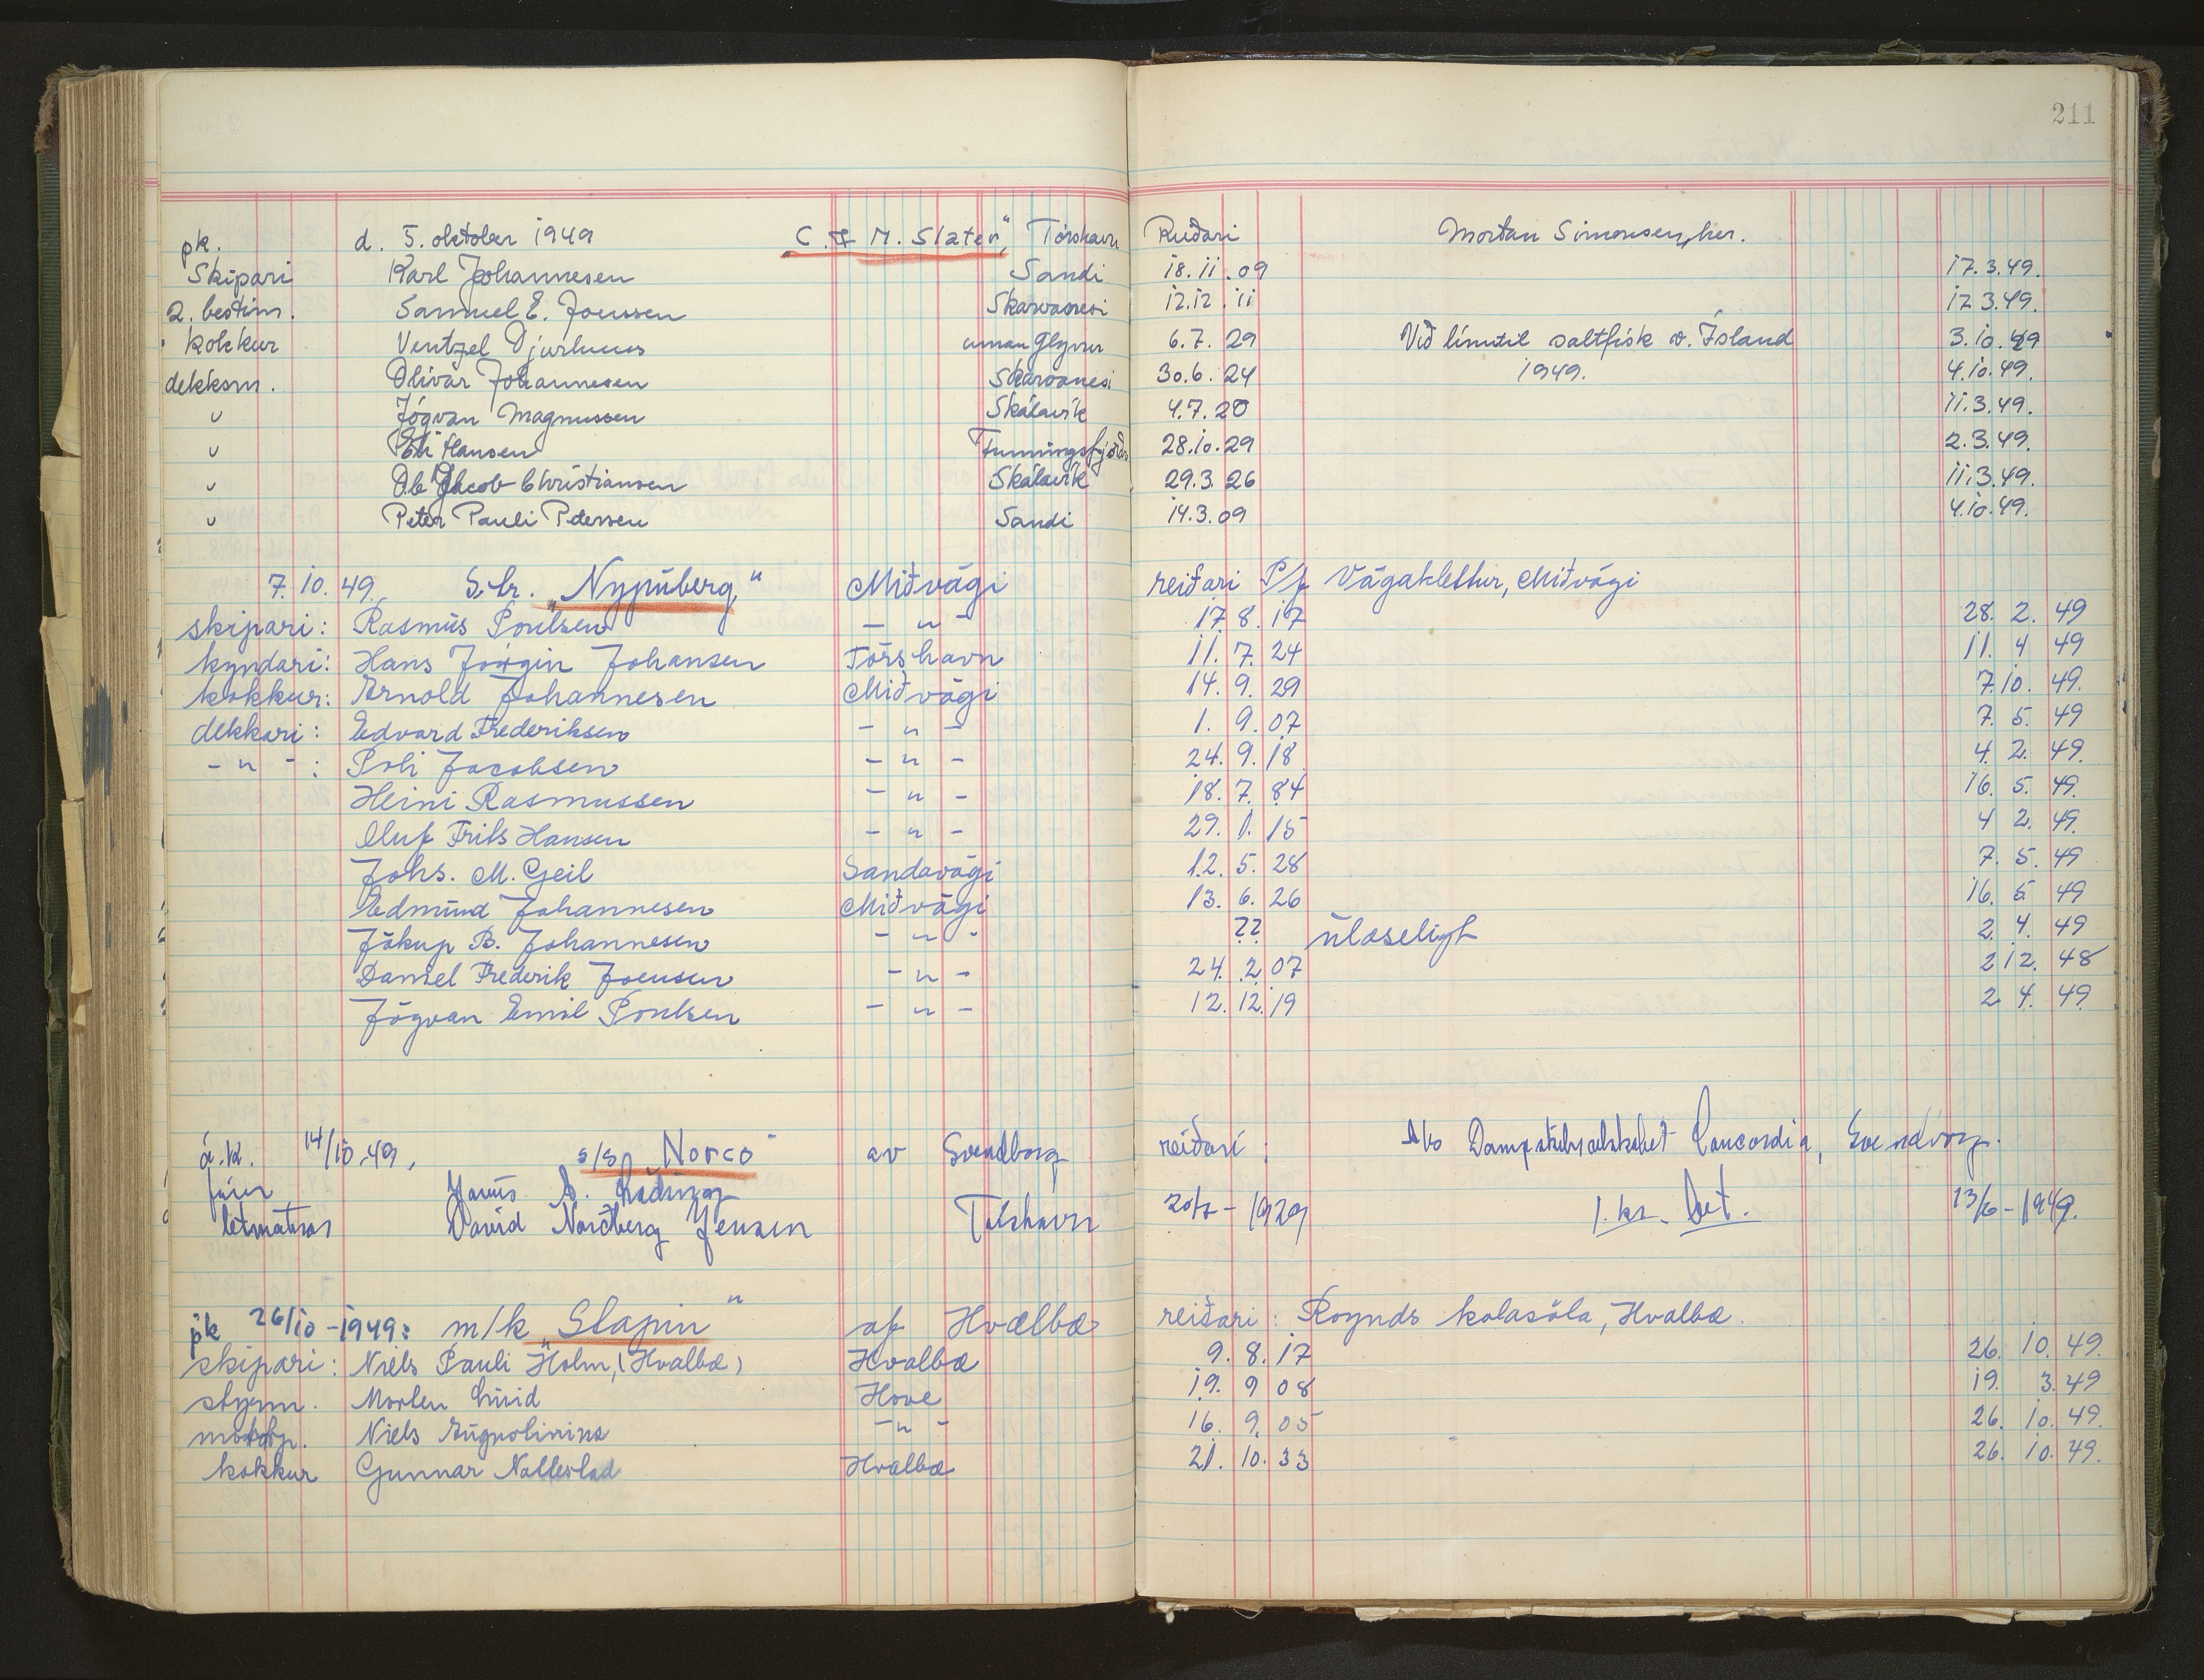 211
pk. d. 5. oktober 1949 "C. & M. Slater", Tórshavn Reiðari Mortan Simonsen, her.
Skipari Karl Johannesen Sandi 18.11.09 17.3.49.
2. bestm. Samuel E. Joensen Skarvanesi 12.12.11 17.3.49.
kokkur Ventzel Djurhuus uman Glyvur 6.7.29 Við línu til saltfisk v. Ísland 3.10.49
dekksm. Olivar Johannesen Skarvanesi 30.6.24 1949. 4.10.49.
" Jógvan Magnussen Skálavík 4.7.20 11.3.49.
" Eli Hansen Funningsfjørð 28.10.29 2.3.49.
" Ole Jacob Christiansen Skálavík 29.3.26 11.3.49.
" Peter Pauli Petersen Sandi 14.3.09 4.10.49.
7.10.49. S.tr. "Nypúberg" Miðvági reiðari P/f Vágaklettur, Miðvági
skipari: Rasmus Poulsen - " - 17.8.17 28.2.49
kyndari: Hans Jørgin Johansen Tórshavn 11.7.24 11.4 49
kokkur: Arnold Johannesen Miðvági 14.9.29 7.10.49.
dekkari: Edvard Frederiksen - " - 1.9.07 7.5.49
- " - : Poli Jacobsen - " - 24.9.18 4.2.49.
Heini Rasmussen - " - 18.7.84 16.5.49.
Oluf Frits Hansen - " - 29.1.15 4 2.49.
Johs. M. Geil Sandavági 12.5.28 7.5.49
Edmund Johannesen Miðvági 13.6.26 16.5 49
Jákup B. Johannesen - " - ?? ulæseligt 2.4.49
Daniel Frederik Joensen - " - 24.2.07 2 12.48
Jógvan Emil Poulsen - " - 12.12.19 2 4.49
á.k. 14/10.49, s/s "Norco" av Svendborg reiðari: A/s Dampskibsselskabet Concordia, Svendborg.
letmatros David Nordberg Jensen Tórshavn 20/7-1929 1. kr. bet. 13/6-1949.
pk 26/10-1949: m/k "Slapin" af Hvalbø reiðari: Roynds kolasøla, Hvalbø.
skipari: Niels Pauli Holm, (Hvalbø) Hvalbø 9.8.17 26.10.49.
stýrm. Morten Luid Hove 19.9 08 19. 3.49
motorp. Niels Augnolinius - " - 16.9.05 26.10.49.
kokkur Gunnar Nolsvlad Hvalbø 21.10.33 26.10.49.